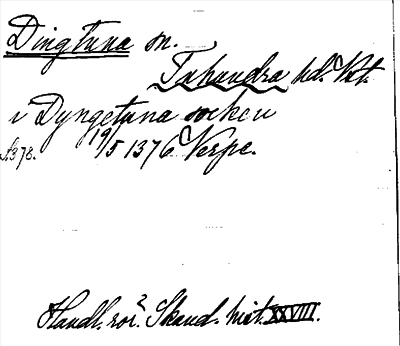 Dingtuna sn.
Tuhundra hd. Vstm.
i Dyngetuna soken
s. 378. 19/5 1376 Verpe.
Handl. rör. Skand. hist. XXVIII.